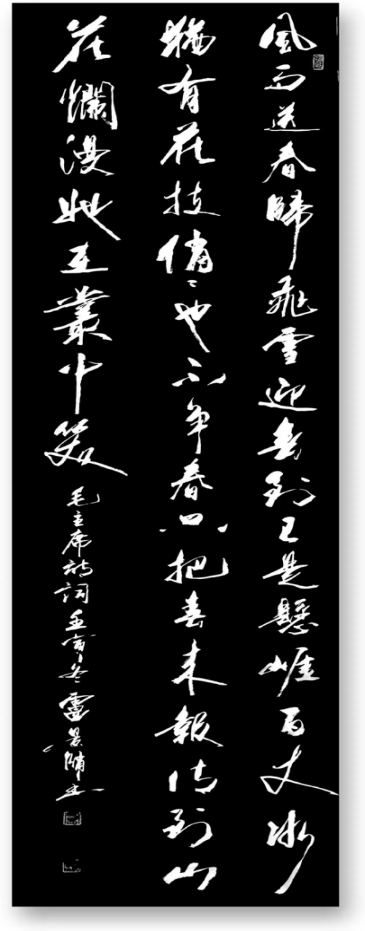 風雨送春歸飛雪迎春到已是懸崖百丈冰
猶有花枝俏〻也不争春只把春来報待到山
花爛漫她在叢中笑
毛主席詩詞冬書